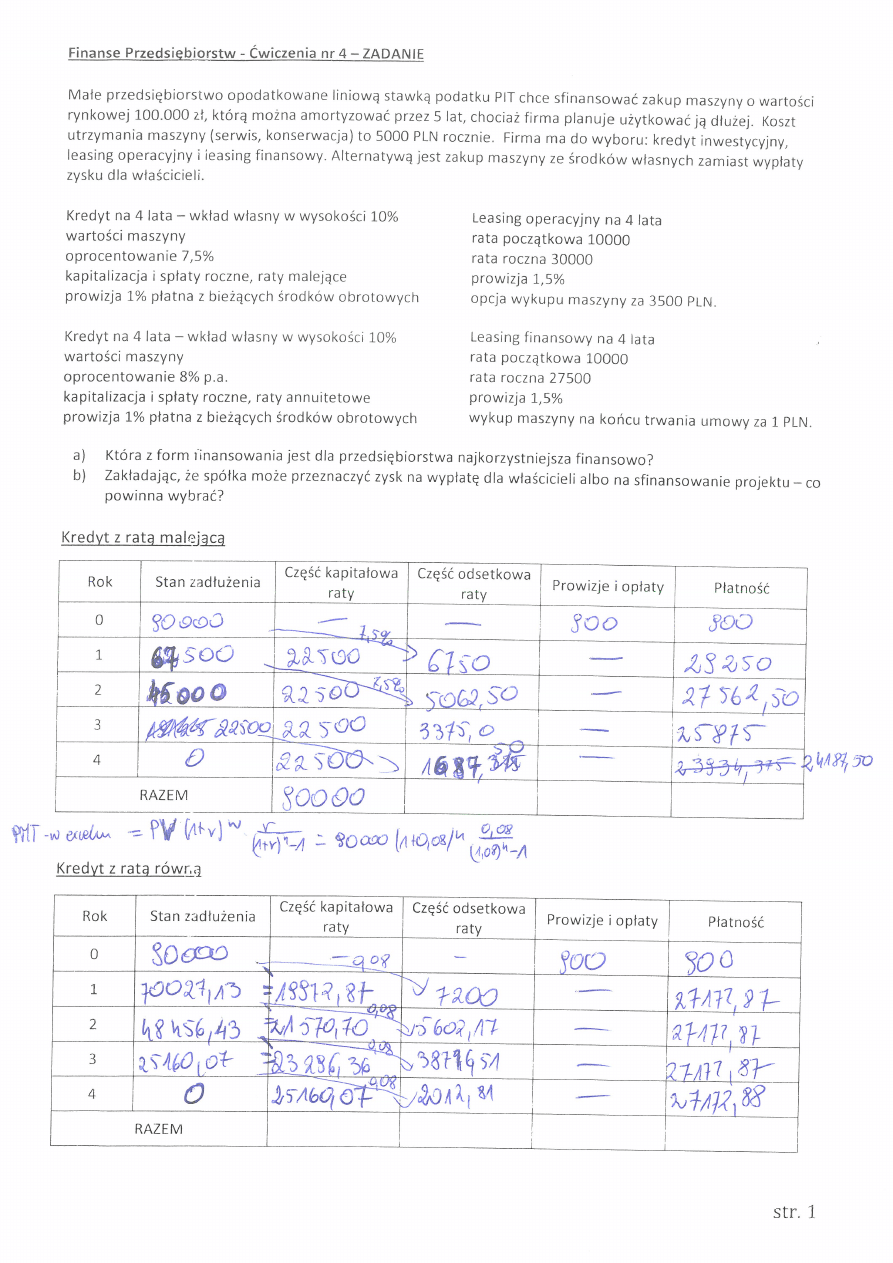 Finanse Przedsiębiorstw - Ćwiczenia nr 4 – ZADANIE
Małe przedsiębiorstwo opodatkowane liniową stawką podatku PIT chce sfinansować zakup maszyny o wartości
rynkowej 100.000 zł, którą można amortyzować przez 5 lat, chociaż firma planuje użytkować ją dłużej. Koszt
utrzymania maszyny (serwis, konserwacja) to 5000 PLN rocznie. Firma ma do wyboru: kredyt inwestycyjny,
leasing operacyjny i leasing finansowy. Alternatywą jest zakup maszyny ze środków własnych zamiast wypłaty
zysku dla właścicieli.
Kredyt na 4 lata – wkład własny w wysokości 10%
wartości maszyny
oprocentowanie 7,5%
kapitalizacja i spłaty roczne, raty malejące
prowizja 1% płatna z bieżących środków obrotowych
Leasing operacyjny na 4 lata
rata początkowa 10000
rata roczna 30000
prowizja 1,5%
opcja wykupu maszyny za 3500 PLN.
Kredyt na 4 lata – wkład własny w wysokości 10%
wartości maszyny
oprocentowanie 8% p.a.
kapitalizacja i spłaty roczne, raty annuitetowe
prowizja 1% płatna z bieżących środków obrotowych
Leasing finansowy na 4 lata
rata początkowa 10000
rata roczna 27500
prowizja 1,5%
wykup maszyny na końcu trwania umowy za 1 PLN.
a) Która z form finansowania jest dla przedsiębiorstwa najkorzystniejsza finansowo?
b) Zakładając, że spółka może przeznaczyć zysk na wypłatę dla właścicieli albo na sfinansowanie projektu – co
powinna wybrać?
Kredyt z ratą malejącą
Rok Stan zadłużenia Część kapitałowa raty Część odsetkowa raty Prowizje i opłaty Płatność
0 90000 — — 900 900
7,5%
1 67500 22500 6750 — 29250
7,5%
2 45000 22500 5062,50 — 27562,50
3 22500 22500 3375,0 — 25875
4 0 22500 1687,50 — 23934,375 24187,50
RAZEM 90000
PMT - w excelu = PV (1+r)^n · r/((1+r)^n-1) = 90000 (1+0,08)^4 0,08/((1,08)^4-1)
Kredyt z ratą równą
Rok Stan zadłużenia Część kapitałowa raty Część odsetkowa raty Prowizje i opłaty Płatność
0 90000 — – 900 900
0,08
1 70027,13 =19972,87 7200 — 27172,87
0,08
2 48456,43 =21570,70 5602,17 — 27172,87
0,08
3 25160,07 =23296,36 3876,51 — 27172,87
0,08
4 0 25160,07 2012,81 — 27172,88
RAZEM
str. 1